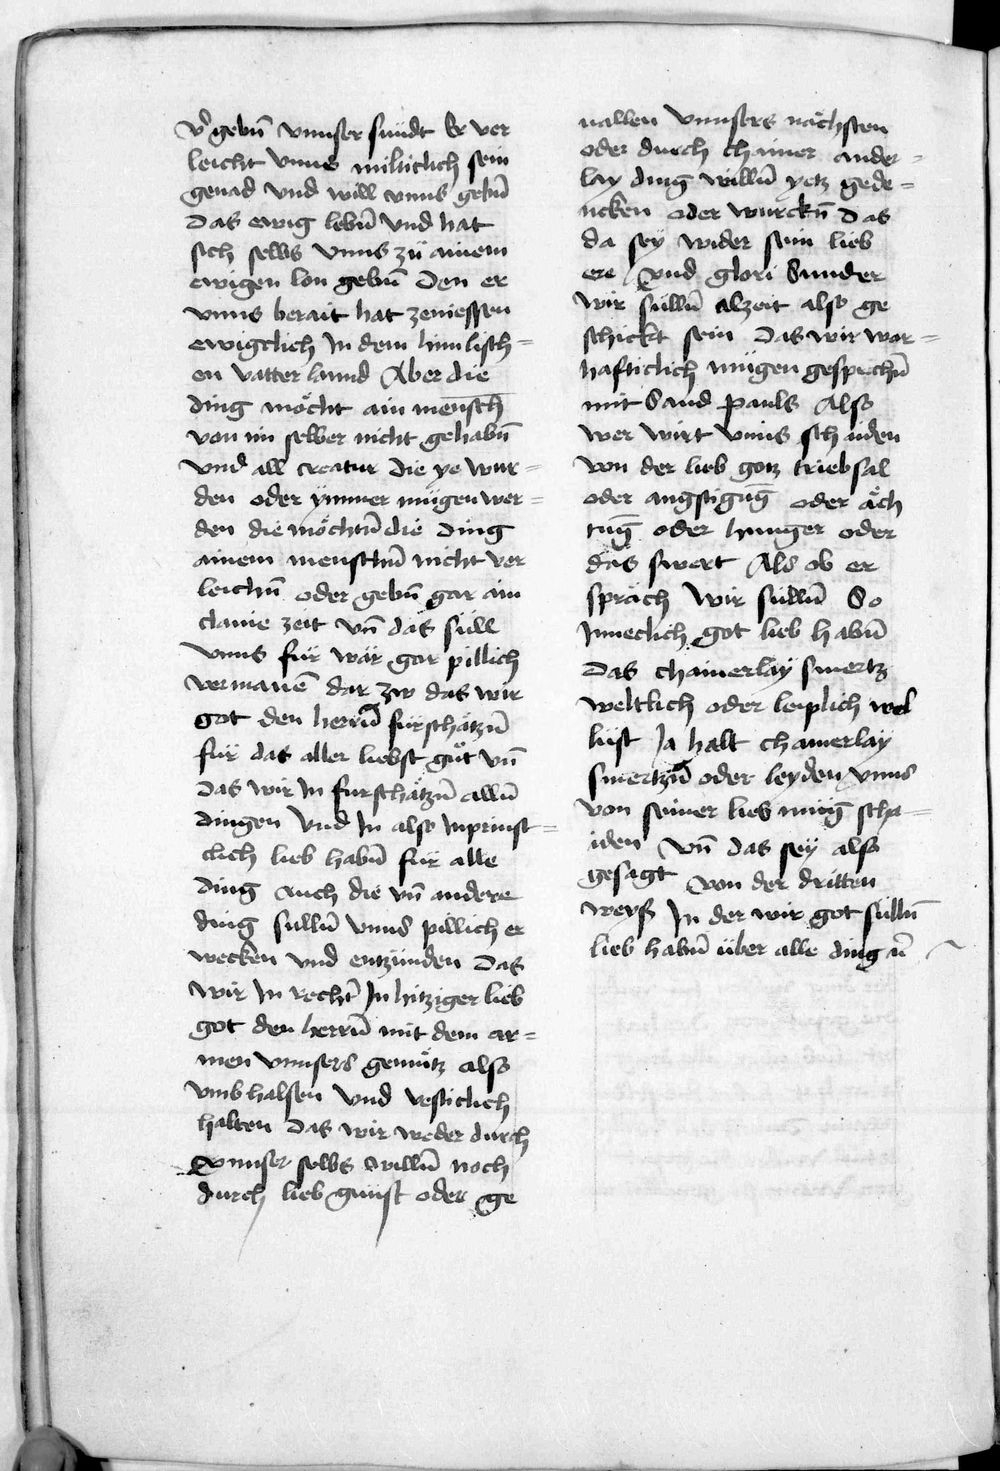 v̉gebn̄ vnnser sundt Er ver
leicht vnns milticlich sein
genad vnd will vnns gebn̄
das ewig lebn̄ vnd hat
sich selbs vnns zu ainem
ewigen lon gebn̄ den er
vnns berait hat zeniessen
ewigclich In dem himlisch=
en vatter lannd Aber die
ding möcht ain mensch
von im selber nicht gehabn̄
vnd all creatur die ye wur=
den oder ymmer mügen wer=
den die möchtn̄ die ding
ainem menschn̄ nicht ver
leichn̄ oder gebn̄ gar ain
claine zeit vn̄ das süll
vnns für war gar pillich
vermanen̄ dar zw das wir
got den herrn̄ fürschätzn̄
für das aller liebst güt vn̄
das wir In furschätzn̄ alln̄
dingen vnd In also Inprinst=
clich lieb habn̄ für alle
ding Auch die vn̄ andere
ding sulln̄ vnns pillich er
wecken vnd entzünden das
wir In recht̄ In hitziger lieb
got den herrn̄ mit dem ar=
men vnnsers gemütz also
vmbhalsen vnd vesticlich
halten das wir weder durch
vnnser selbs willn̄ noch
durch lieb gunst oder ge
uallen vnnsers nächsten
oder durch chainer ander=
lay ding willn̄ yetz gede=
ncken oder wurckn̄ das
da sey wider sein lieb
ere vnd glori Sunder
wir sulln̄ alzeit also ge
schickt sein das wir war=
hafticlich mügen gesprechn̄
mit Sand pauls Also
wer wirt vnns schaiden
von der lieb gotz triebsal
oder angstigūg oder äch
tūg oder hunger oder
das swert Als ob er
spräch wir sulln̄ So
Inneclich got lieb habn̄
das chainerlay smertz
weltlich oder leiplich wol
lust Ja halt chainerlay
smertzn̄ oder leyden vnns
von seiner lieb müḡ scha=
iden vn̄ das sey also
gesagt von der dritten
weyß In der wir got sulln̄
lieb habn̄ über alle ding